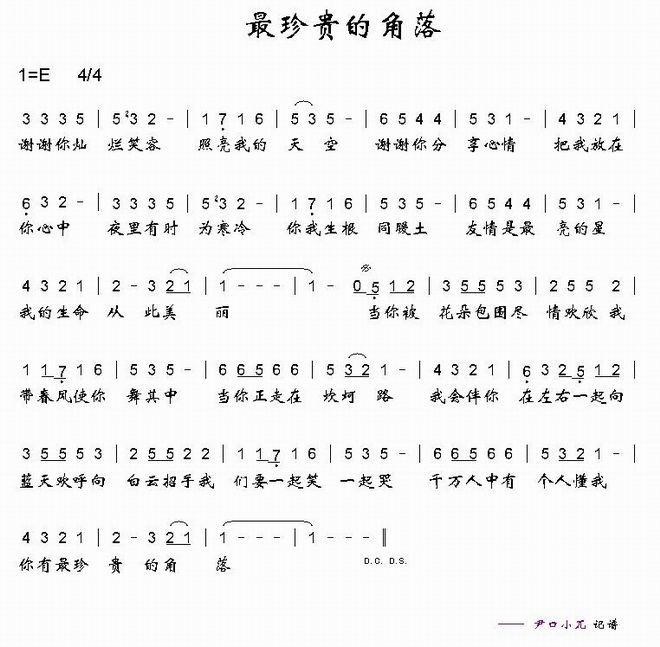 最珍贵的角落
1=E 4/4
3 3 3 5 | 5 2 3 2 - | 1 7 1 6 | 5 3 5 - | 6 5 4 4 | 5 3 1 - | 4 3 2 1 |
谢谢你灿 烂笑容 照亮我的 天 空 谢谢你分 享心情 把我放在
6 3 2 - | 3 3 3 5 | 5 2 3 2 - | 1 7 1 6 | 5 3 5 - | 6 5 4 4 | 5 3 1 - |
你心中 夜里有时 为寒冷 你我生根 同暖土 友情是最 亮的星
4 3 2 1 | 2 - 3 2 1 | 1 - - - | 1 - 0 5 1 2 | 3 5 5 5 3 | 2 5 5 2 |
我的生命 从 此美 丽 当你被 花朵包围尽 情欢欣 我
1 1 7 1 6 | 5 3 5 - | 6 6 5 6 6 | 5 3 2 - | 4 3 2 1 | 6 3 2 5 1 2 |
带春风使你 舞其中 当你正走在 坎坷 路 我会伴你 在左右一起向
3 5 5 5 3 | 2 5 5 2 2 | 1 1 7 1 6 | 5 3 5 - | 6 6 5 6 6 | 5 3 2 1 - |
蓝天欢呼向 白云招手我 们要一起笑 一起哭 千万人中有 个人懂我
4 3 2 1 | 2 - 3 2 1 | 1 - - - | 1 - - - ‖
你有最珍 贵 的角 落 D.C. D.S.
—— 尹口小兀 记谱